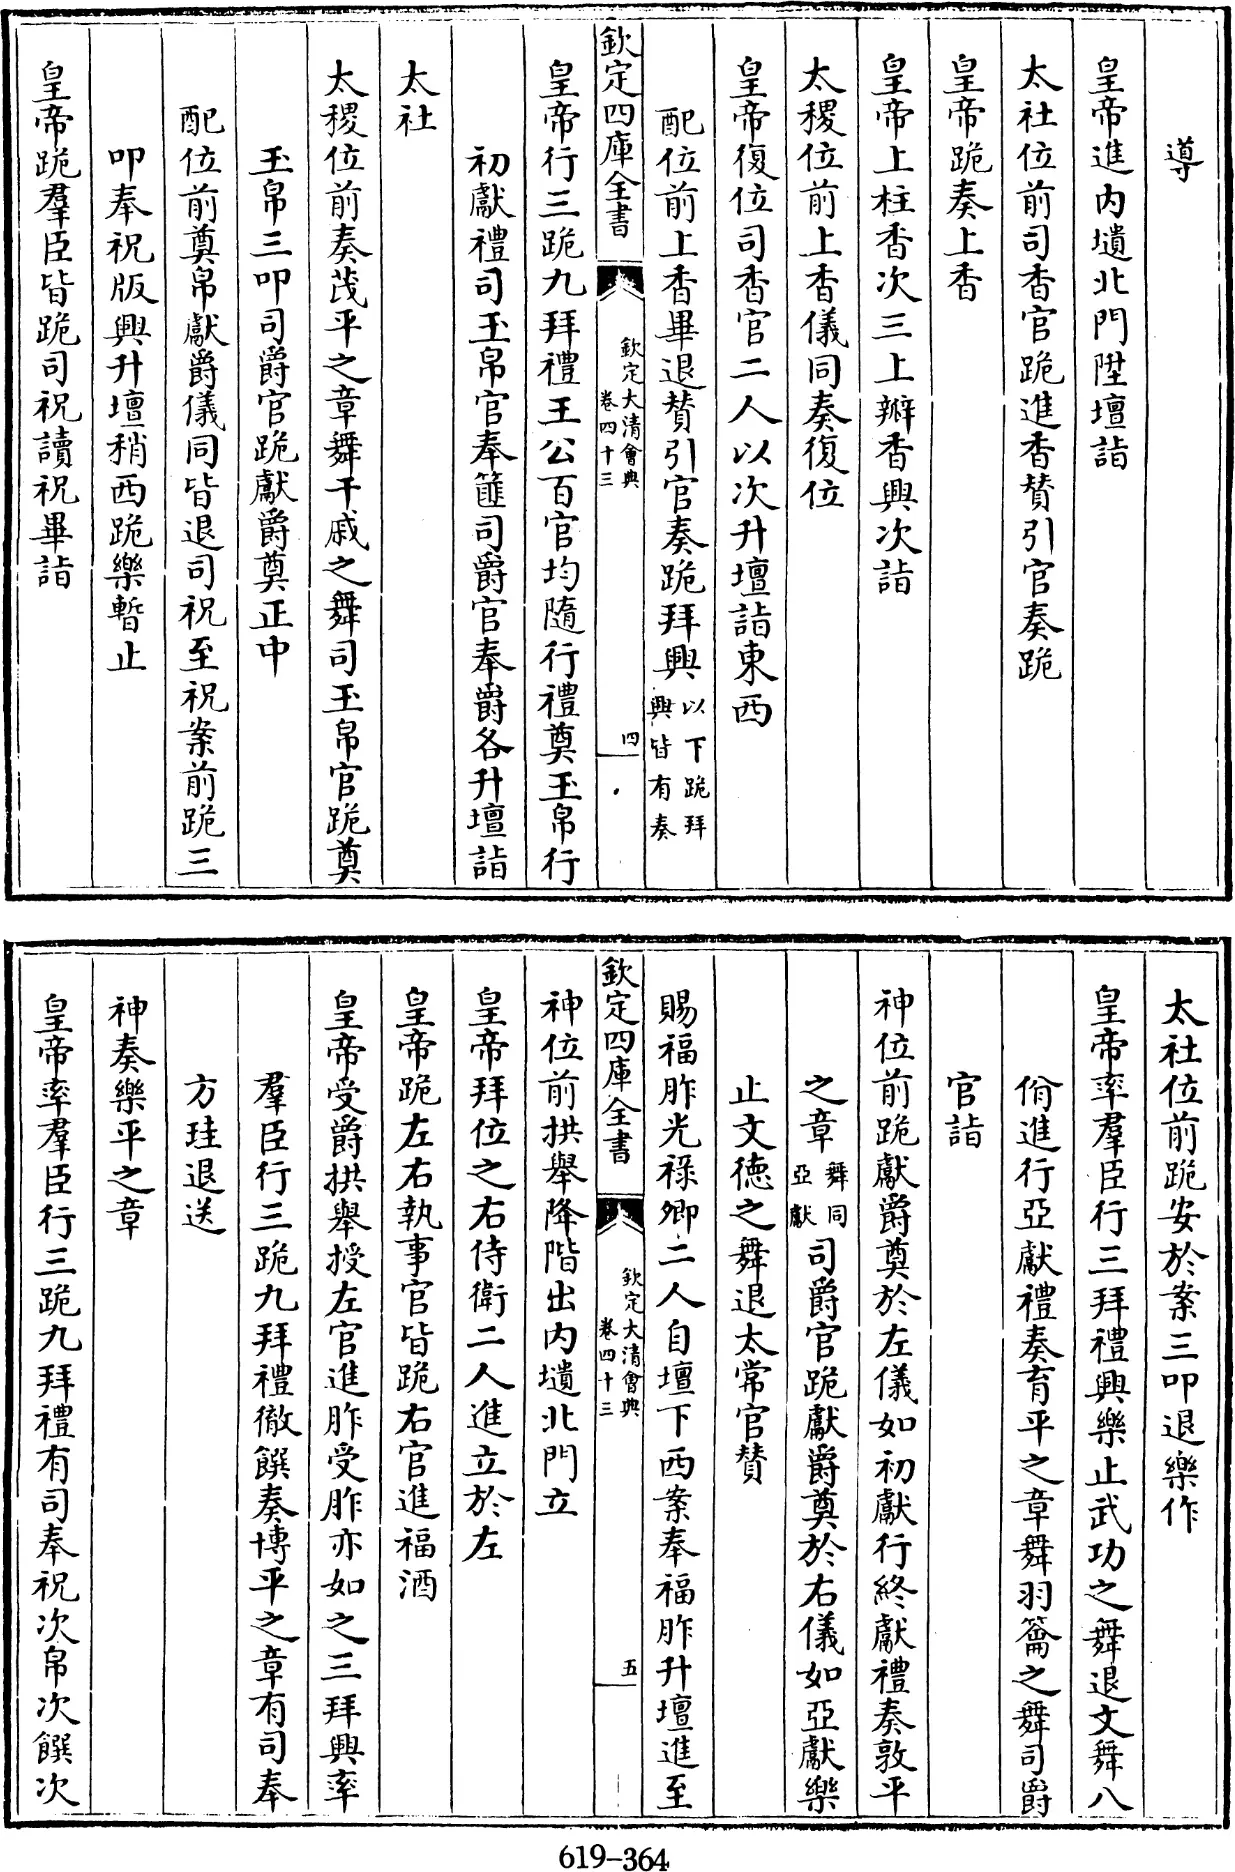 導
皇帝進内壝北門陞壇詣
太社位前司香官跪進香贊引官奏跪
皇帝跪奏上香
皇帝上柱香次三上瓣香興次詣
太稷位前上香儀同奏復位
皇帝復位司香官二人以次升壇詣東西
配位前上香畢退贊引官奏跪拜興以下跪拜
興皆有奏
欽定四庫全書
欽定大清會典
卷四十三
四
皇帝行三跪九拜禮王公百官均隨行禮奠玉帛行
初獻禮司玉帛官奉篚司爵官奉爵各升壇詣
太社
太稷位前奏茂平之章舞干戚之舞司玉帛官跪奠
玉帛三叩司爵官跪獻爵奠正中
配位前奠帛獻爵儀同皆退司祝至祝案前跪三
叩奉祝版興升壇稍西跪樂暫止
皇帝跪羣臣皆跪司祝讀祝畢詣
太社位前跪安於案三叩退樂作
皇帝率羣臣行三拜禮興樂止武功之舞退文舞八
佾進行亞獻禮奏育平之章舞羽籥之舞司爵
官詣
神位前跪獻爵奠於左儀如初獻行終獻禮奏敦平
之章舞同
亞獻司爵官跪獻爵奠於右儀如亞獻樂
止文德之舞退太常官贊
賜福胙光祿卿二人自壇下西案奉福胙升壇進至
欽定四庫全書
欽定大清會典
卷四十三
五
神位前拱舉降階出内壝北門立
皇帝拜位之右侍衛二人進立於左
皇帝跪左右執事官皆跪右官進福酒
皇帝受爵拱舉授左官進胙受胙亦如之三拜興率
羣臣行三跪九拜禮徹饌奏博平之章有司奉
方珪退送
神奏樂平之章
皇帝率羣臣行三跪九拜禮有司奉祝次帛次饌次
619-364